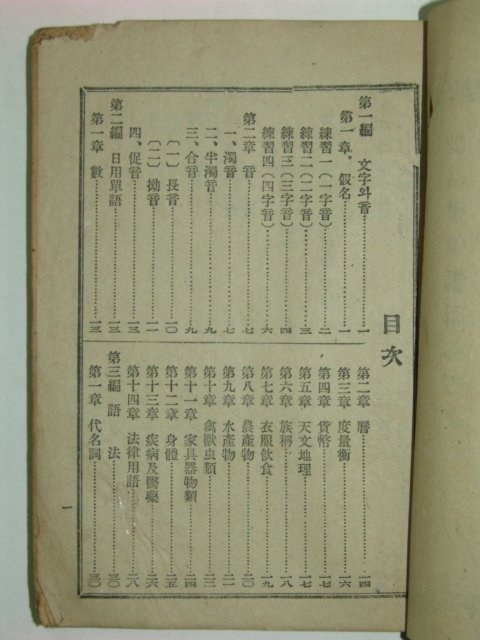 目次
第一編 文字와音……一
第一章、假名……一
練習一(一字音)……二
練習二(二字音)……三
練習三(三字音)……四
練習四(四字音)……六
第二章 音……七
一、濁音……七
二、半濁音……九
三、合音……九
(一)長音……一〇
(二)拗音……一一
四、促音……一三
第二編 日用單語……一三
第一章 數……一三
第二章 曆……一四
第三章 度量衡……一六
第四章 貨幣……一七
第五章 天文地理……一七
第六章 族稱……一八
第七章 衣服飮食……一九
第八章 農產物……二〇
第九章 水產物……二一
第十章 禽獸虫類……二三
第十一章 家具器物類……二四
第十二章 身體……二五
第十三章 疾病及醫藥……二六
第十四章 法律用語……二八
第三編 語法……三〇
第一章 代名詞……三〇
一